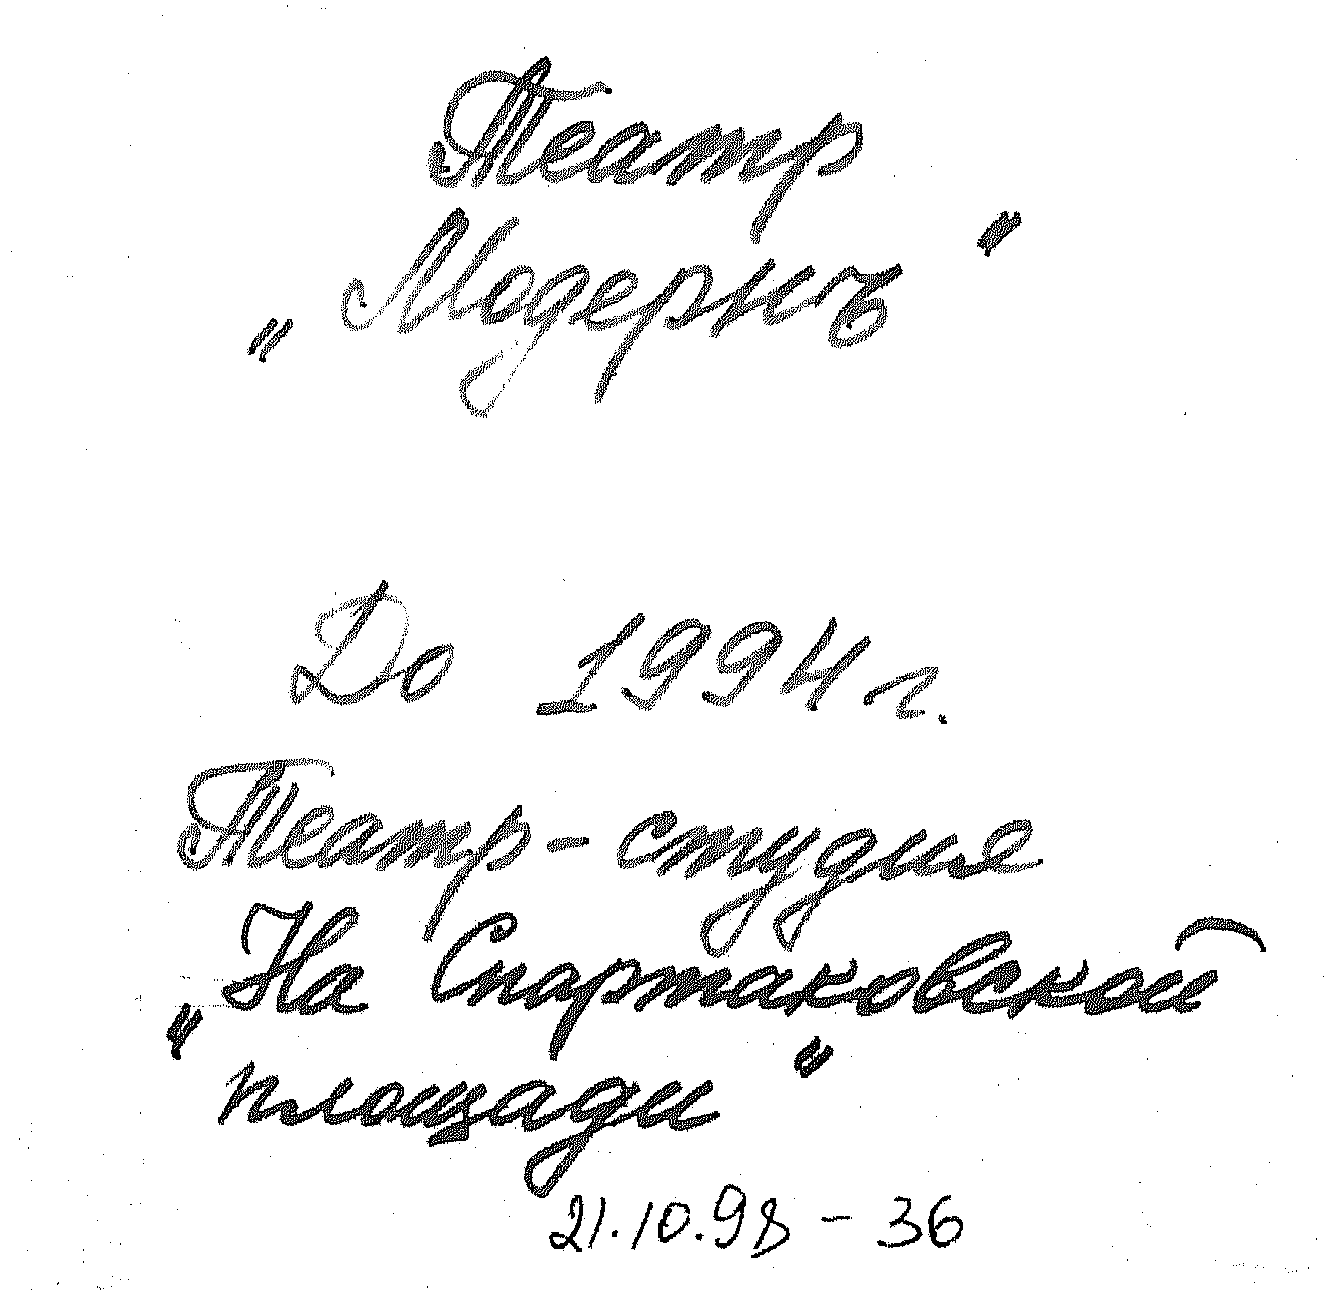 Театр
„Модернъ"
До 1994 г.
Театр-студия
„На Спартаковской
площади"
21.10.98 - 36